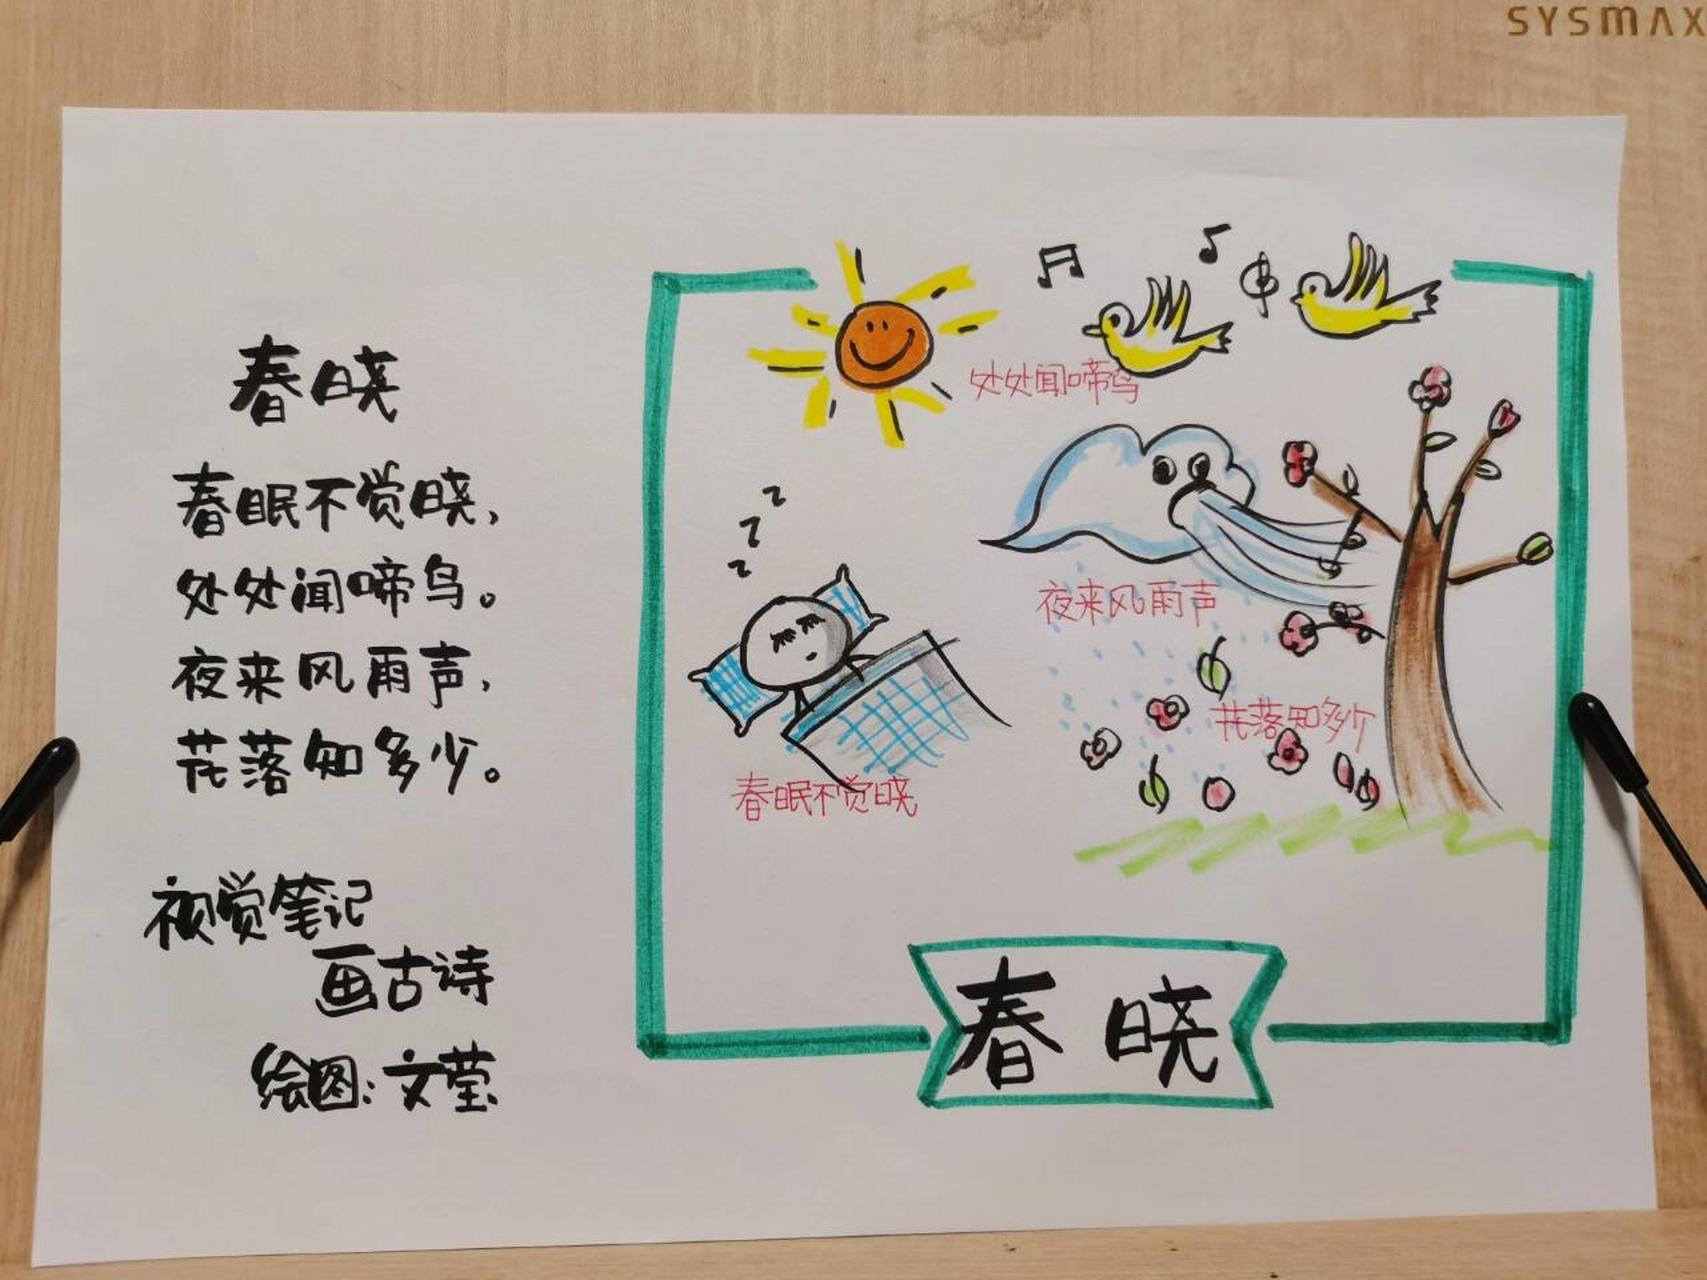 SYSMAX
春晓
春眠不觉晓，
处处闻啼鸟。
夜来风雨声，
花落知多少。
视觉笔记
画古诗
绘图：文莹
z
z
z
处处闻啼鸟
夜来风雨声
花落知多少
春眠不觉晓
春晓